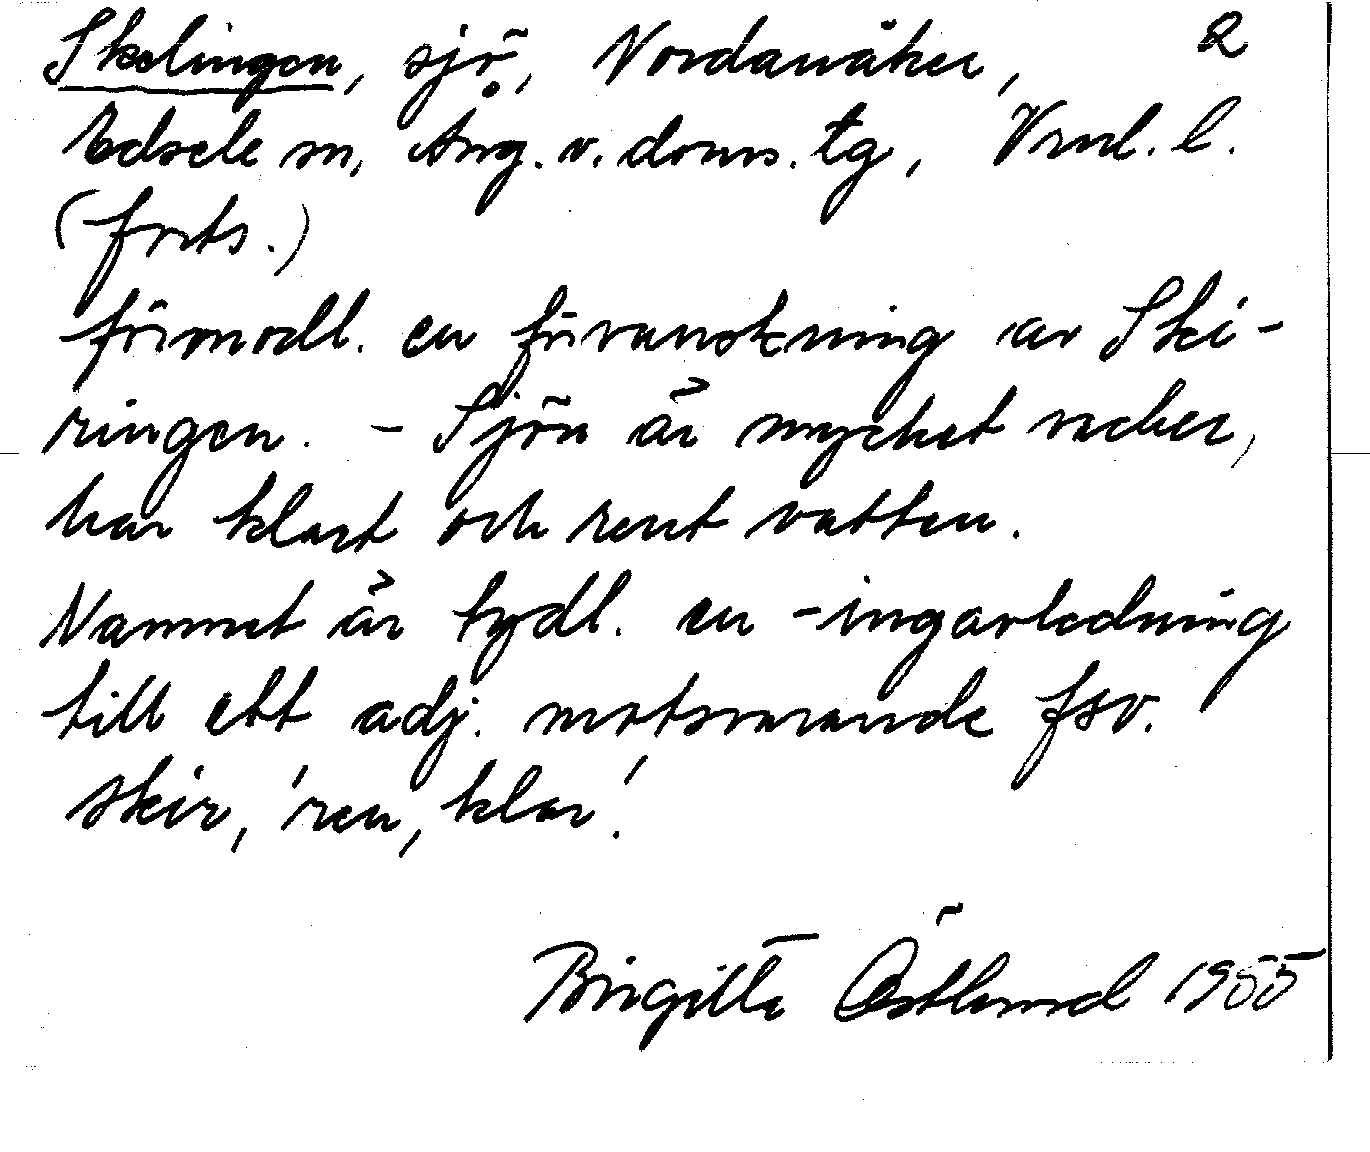 Skelingen, sjö, Nordanåker, 2
Edsele sn, Ång. v. doms. tg, Vrnl. l.
(forts.)
förmodl. en förvanskning av Ski-
ringen. - Sjön är mycket vacker,
har klart och rent vatten.
Namnet är tydl. en -ingavledning
till ett adj. motsvarande fsv.
skir, 'ren, klar'.
Birgitta Östlund 1955